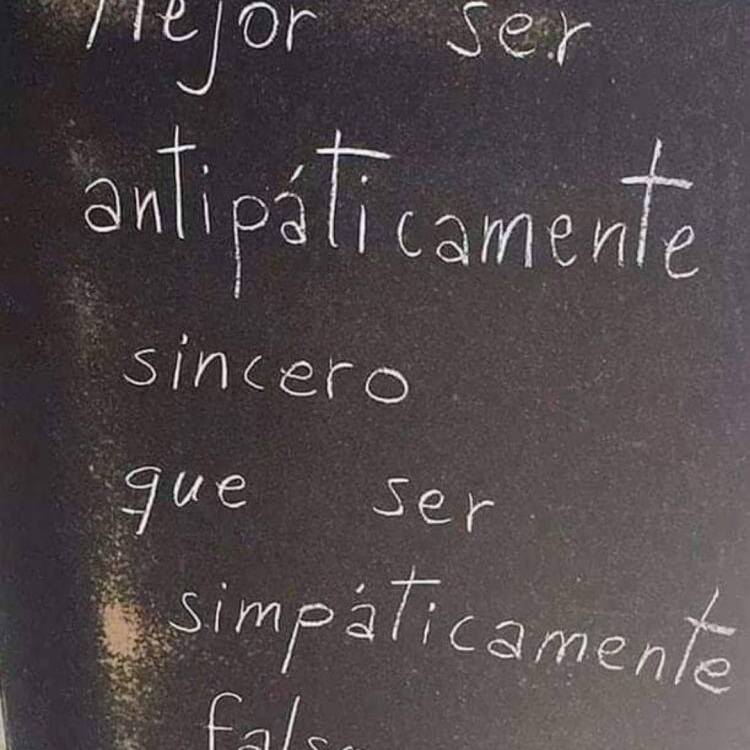 Mejor ser
antipáticamente
sincero
que ser
simpáticamente
falso